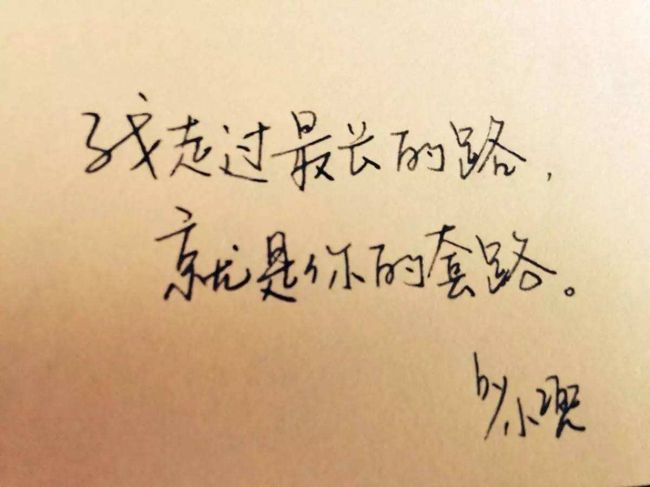 我走过最长的路,
就是你的套路。
by小